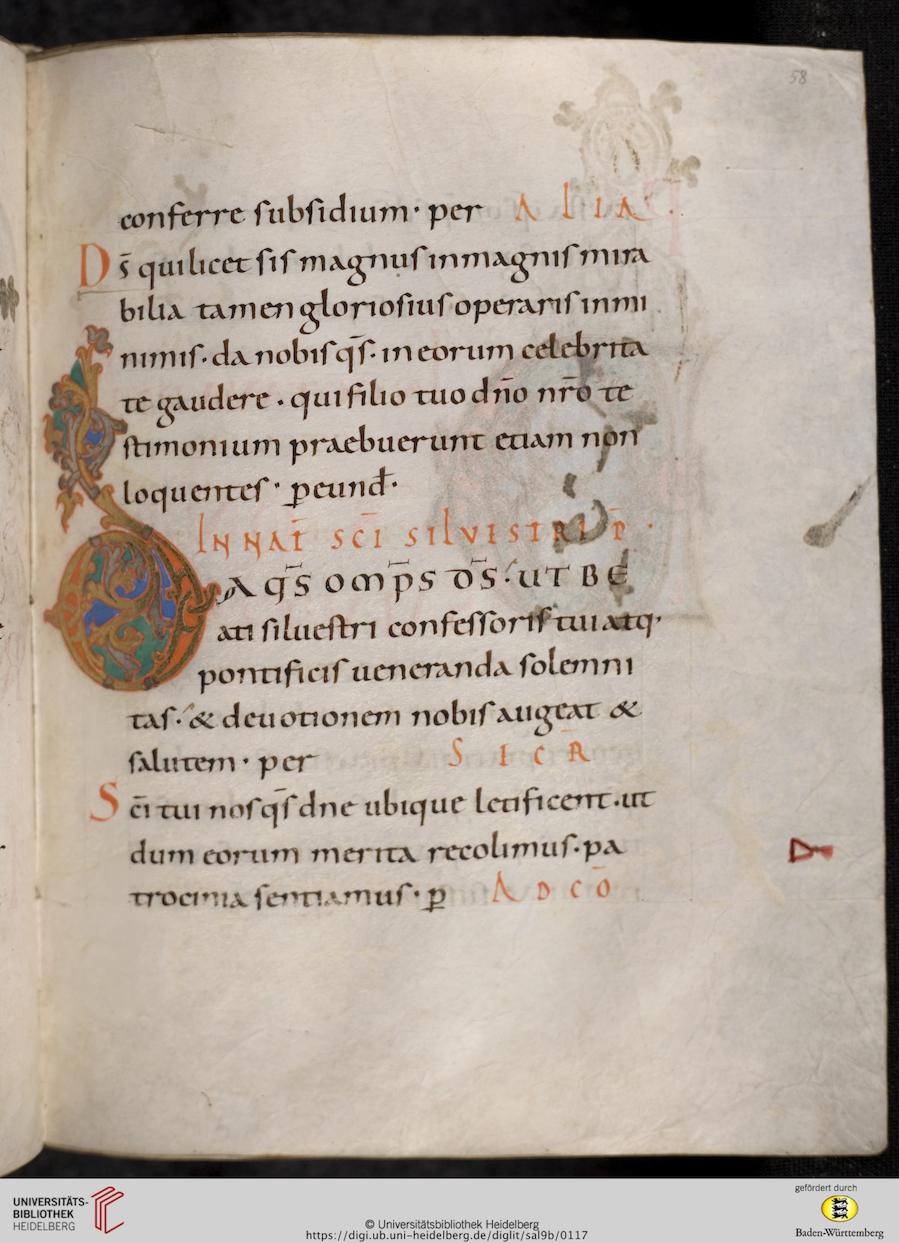 58
conferre subsidium· per ALIA·
D s̄ qui licet sis magnus in magnis mira
bilia tamen gloriosius operaris in mi
nimis· da nobis q̄s· in eorum celebrita
te gaudere· qui filio tuo dn̄o nr̄o te
stimonium praebuerunt etiam non
loquentes· p̲ eund̄·
IN NAT̄ SC̄I SILVESTRI P̄·
DA Q̄S OMP̄S D̄S· UT BE
ati siluestri confessoris tui atq·
pontificis ueneranda solemni
tas· & deuotionem nobis augeat &
salutem· per SICR̄
Sc̄i tui nos q̄s dne ubique letificent· ut
dum eorum merita recolimus· pa
trocinia sentiamus· p̲ AD CŌ
UNIVERSITÄTS-
BIBLIOTHEK
HEIDELBERG
© Universitätsbibliothek Heidelberg
https://digi.ub.uni-heidelberg.de/diglit/sal9b/0117
gefördert durch
Baden-Württemberg